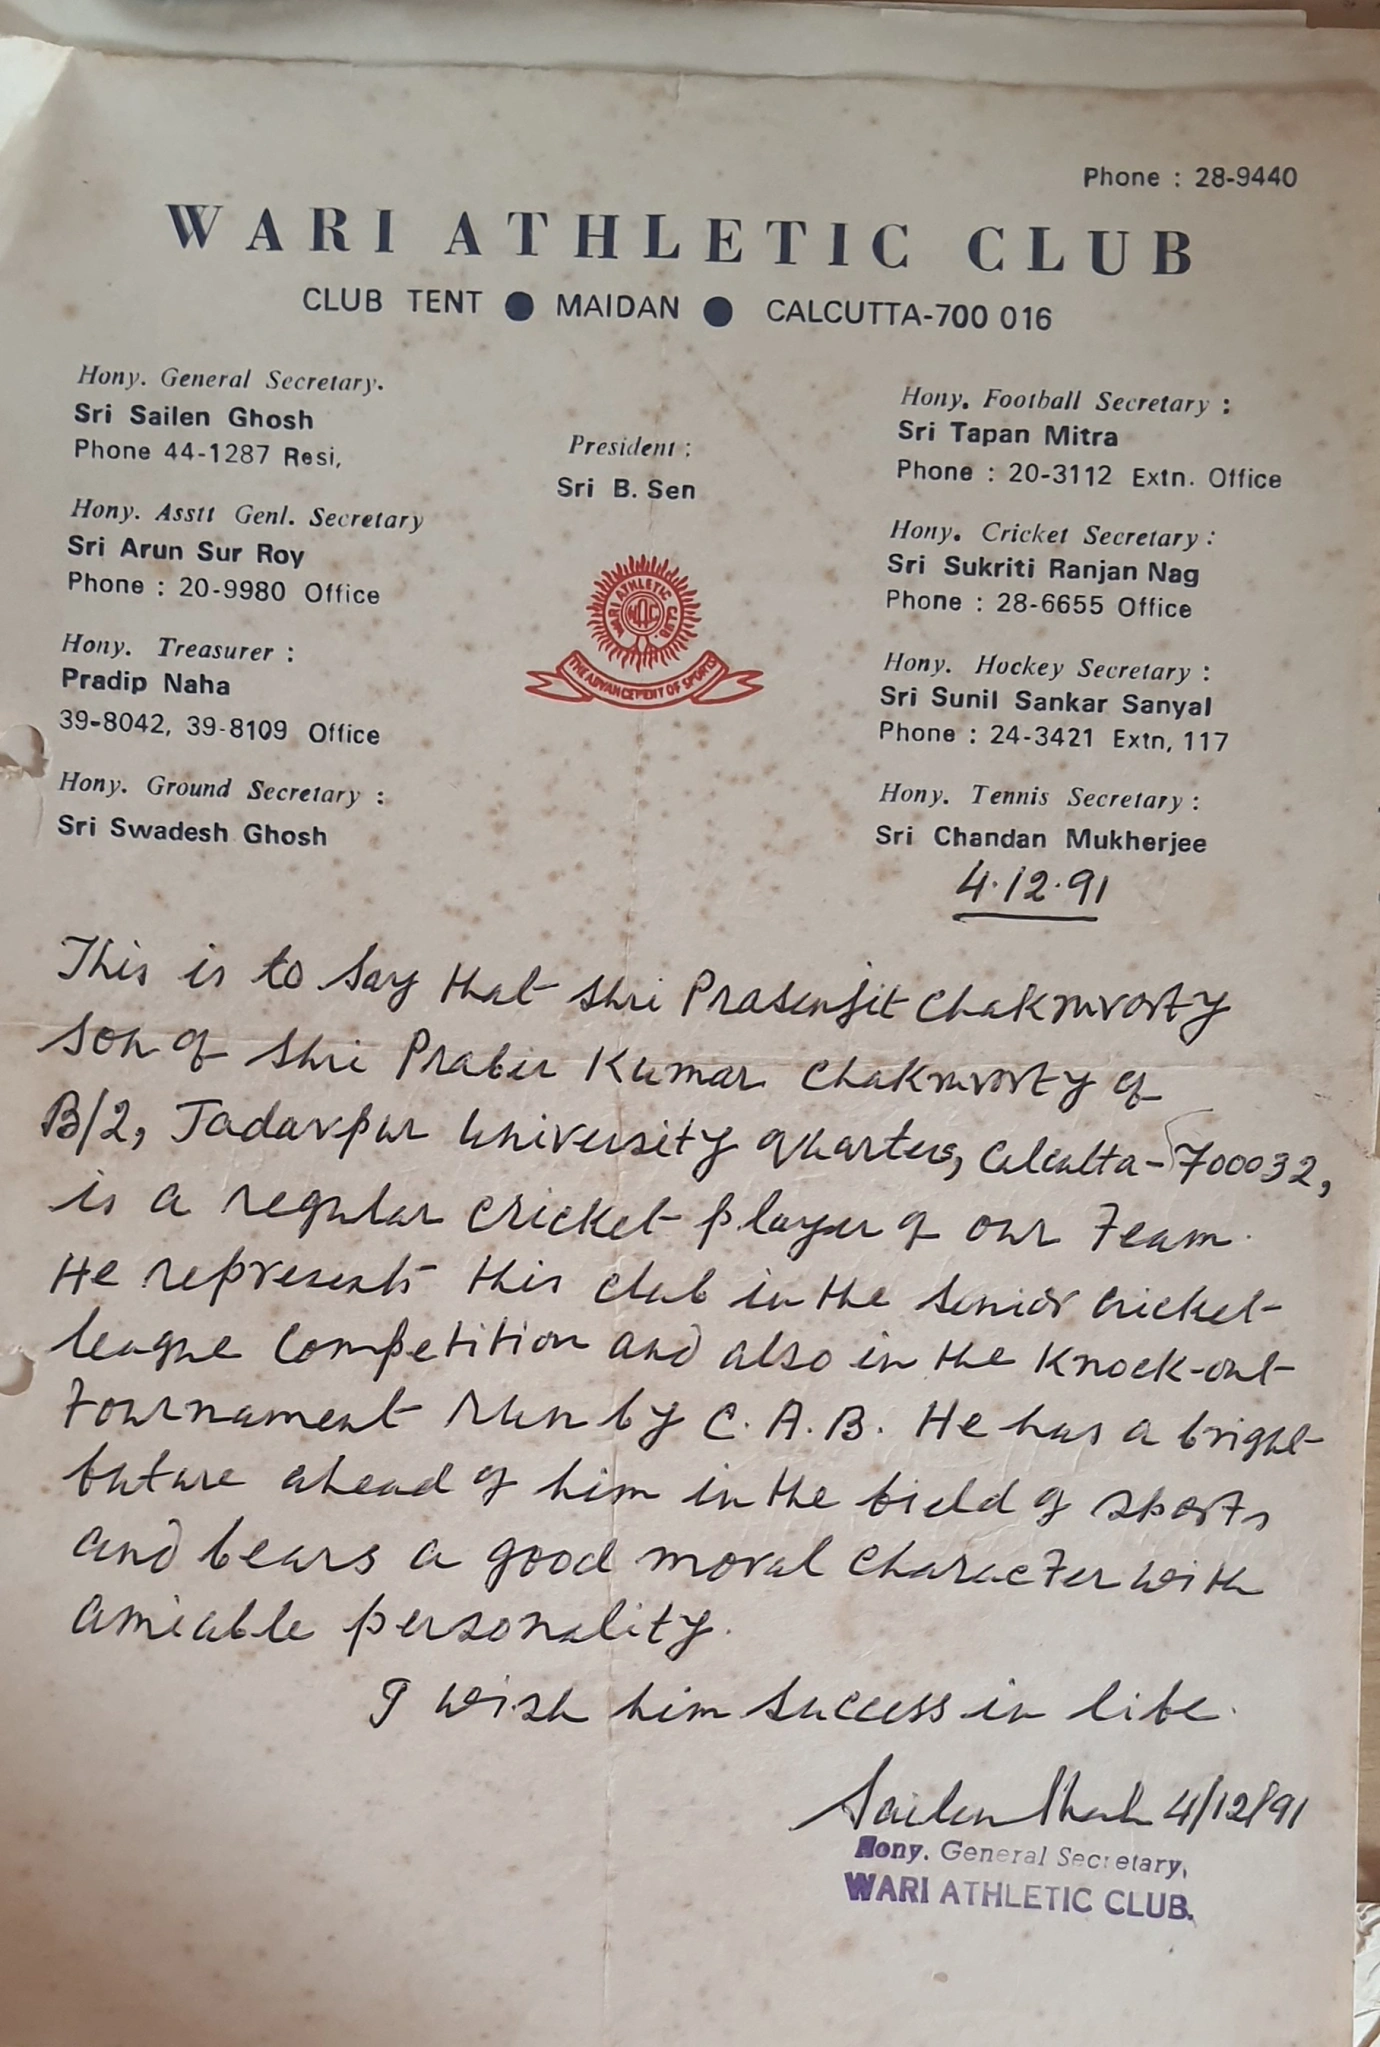 Phone : 28-9440
WARI ATHLETIC CLUB
CLUB TENT ● MAIDAN ● CALCUTTA-700 016
Hony. General Secretary.
Sri Sailen Ghosh
Phone 44-1287 Resi,
Hony. Asstt Genl. Secretary
Sri Arun Sur Roy
Phone : 20-9980 Office
Hony. Treasurer :
Pradip Naha
39-8042, 39-8109 Office
Hony. Ground Secretary :
Sri Swadesh Ghosh
President :
Sri B. Sen
WARI ATHLETIC CLUB
WAC
THE ADVANCEMENT OF SPORTS
Hony. Football Secretary :
Sri Tapan Mitra
Phone : 20-3112 Extn. Office
Hony. Cricket Secretary :
Sri Sukriti Ranjan Nag
Phone : 28-6655 Office
Hony. Hockey Secretary :
Sri Sunil Sankar Sanyal
Phone : 24-3421 Extn, 117
Hony. Tennis Secretary :
Sri Chandan Mukherjee
4.12.91
This is to say that Shri Prasenjit Chakravorty
son of Shri Prabir Kumar Chakravorty of
B/2, Jadavpur University quarters, Calcutta-700032,
is a regular cricket player of our Team.
He represents this club in the senior cricket
league competition and also in the Knock-out
Tournament run by C.A.B. He has a bright
future ahead of him in the field of sports
and bears a good moral character with
amiable personality.
I wish him success in life.
Sailen Ghosh 4/12/91
Hony. General Secretary,
WARI ATHLETIC CLUB.